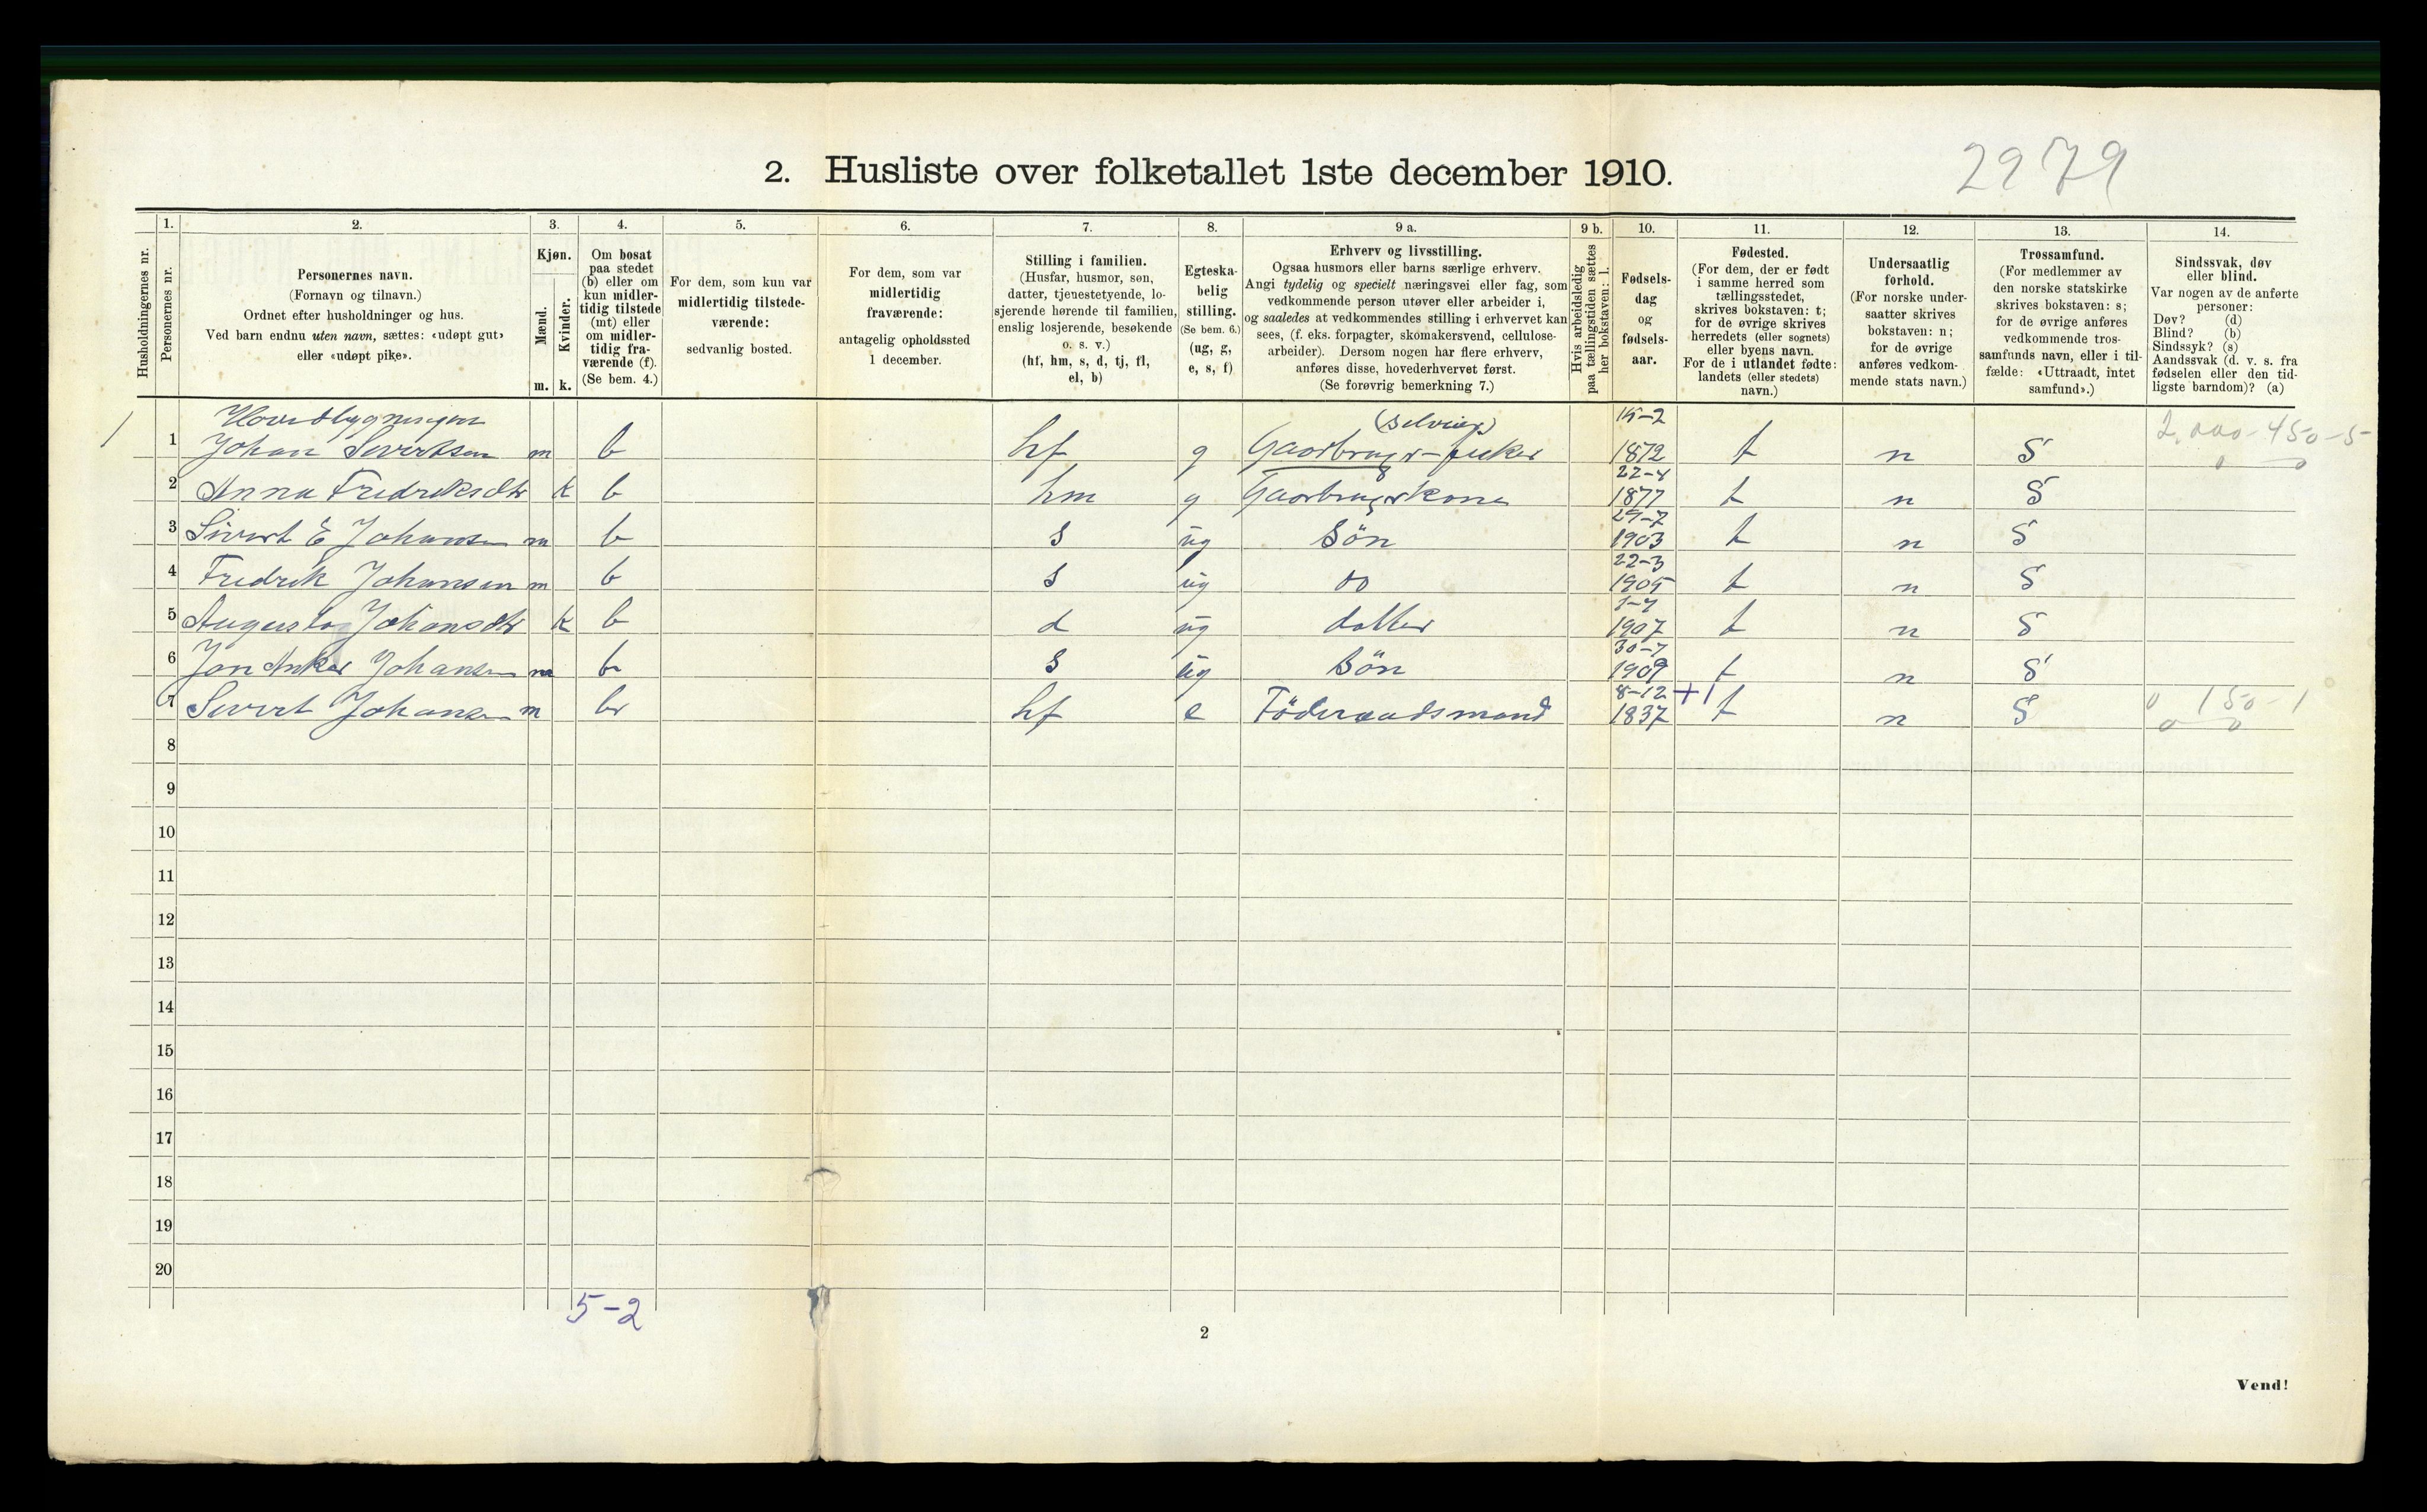 2979
2. Husliste over folketallet 1ste december 1910.
Husholdningernes nr.
1. Personernes nr.
2. Personernes navn. (Fornavn og tilnavn.) Ordnet efter husholdninger og hus. Ved barn endnu uten navn, sættes: «udøpt gut» eller «udøpt pike».
3. Kjøn. Mænd. m. Kvinder. k.
4. Om bosat paa stedet (b) eller om kun midlertidig tilstede (mt) eller om midlertidig fraværende (f). (Se bem. 4.)
5. For dem, som kun var midlertidig tilstedeværende: sedvanlig bosted.
6. For dem, som var midlertidig fraværende: antagelig opholdssted 1 december.
7. Stilling i familien. (Husfar, husmor, søn, datter, tjenestetyende, losjerende hørende til familien, enslig losjerende, besøkende o. s. v.) (hf, hm, s, d, tj, fl, el, b)
8. Egteskabelig stilling. (Se bem. 6.) (ug, g, e, s, f)
9 a. Erhverv og livsstilling. Ogsaa husmors eller barns særlige erhverv. Angi tydelig og specielt næringsvei eller fag, som vedkommende person utøver eller arbeider i, og saaledes at vedkommendes stilling i erhvervet kan sees, (f. eks. forpagter, skomakersvend, cellulosearbeider). Dersom nogen har flere erhverv, anføres disse, hovederhvervet først. (Se forøvrig bemerkning 7.)
9 b. Hvis arbeidsledig paa tællingstiden sættes her bokstaven: l.
10. Fødselsdag og fødselsaar.
11. Fødested. (For dem, der er født i samme herred som tællingsstedet, skrives bokstaven: t; for de øvrige skrives herredets (eller sognets) eller byens navn. For de i utlandet fødte: landets (eller stedets) navn.)
12. Undersaatlig forhold. (For norske undersaatter skrives bokstaven: n; for de øvrige anføres vedkommende stats navn.)
13. Trossamfund. (For medlemmer av den norske statskirke skrives bokstaven: s; for de øvrige anføres vedkommende trossamfunds navn, eller i tilfælde: «Uttraadt, intet samfund».)
14. Sindssvak, døv eller blind. Var nogen av de anførte personer: Døv? (d) Blind? (b) Sindssyk? (s) Aandssvak (d. v. s. fra fødselen eller den tidligste barndom)? (a)
Hovedbygningen (selveier) 15-2 2,000-450-5
1 Johan Sivertsen m b hf g Gaardbruger-fisker 1872 t n S
2 Anna Fredriksdtr k b hm g Gaardbrugerkone 22-4 1877 t n S
3 Sivert E Johansen m b s ug Sön 29-7 1903 t n S
4 Fredrik Johansen m b s ug do 22-3 1905 t n S
5 Augusta Johansdtr k b d ug datter 1-4 1907 t n S
6 Jon Anker Johansen m b s ug Sön 30-7 1909 t n S
7 Sivert Johansen m b hf e Föderaadsmand 8-12 1837 +1 t n S 0 150-1
8
9
10
11
12
13
14
15
16
17
18
19
20
5-2
2
Vend!